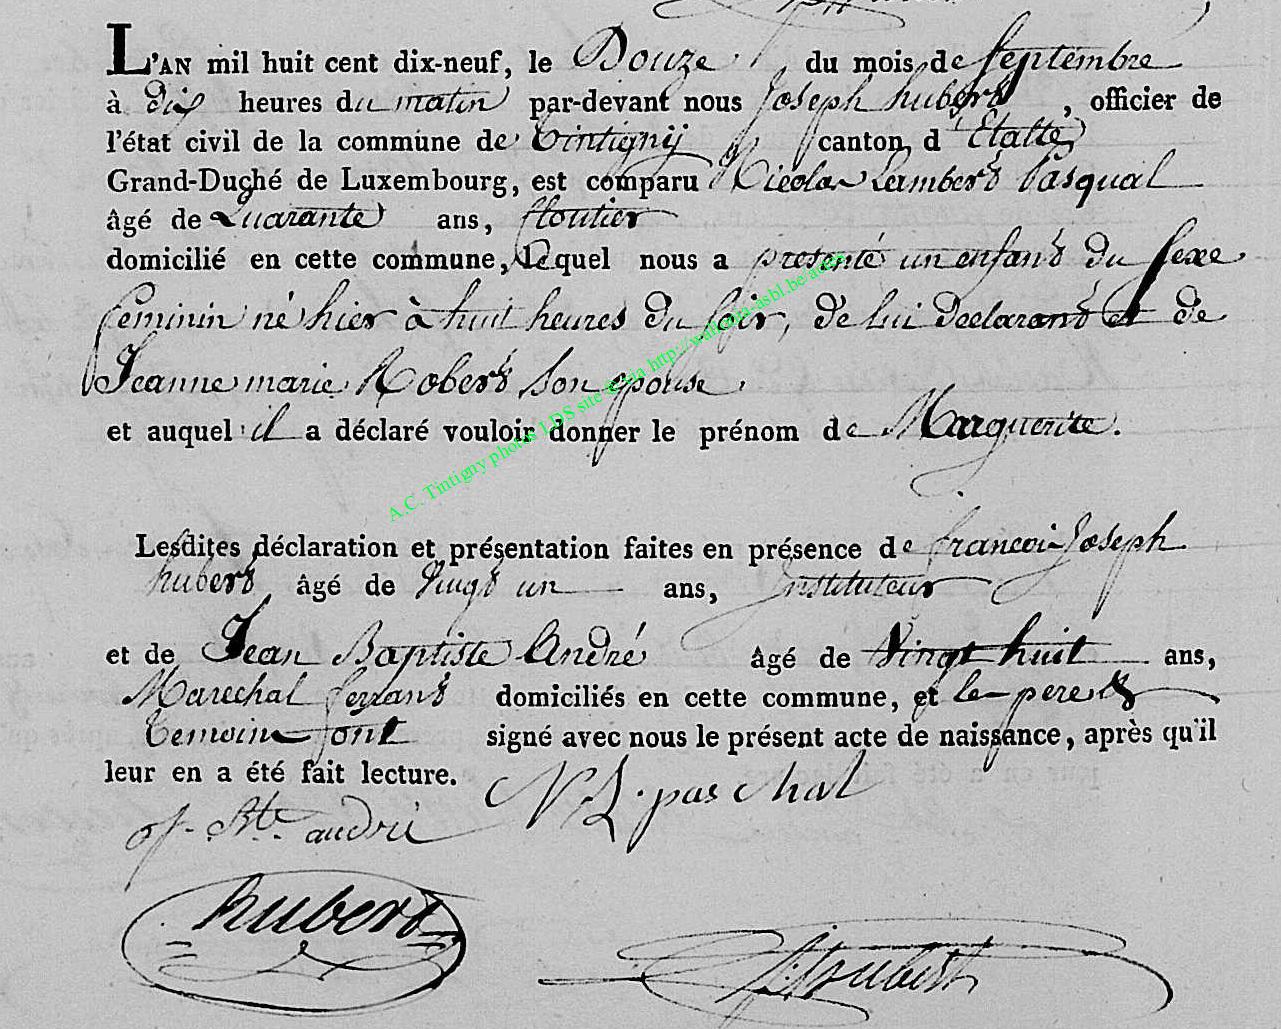 L'AN mil huit cent dix-neuf, le Douze du mois de Septembre
à dix heures du matin par-devant nous Joseph hubert, officier de
l'état civil de la commune de tintigny canton d'Etalle
Grand-Duché de Luxembourg, est comparu Nicolas Lambert Pasqual
âgé de Quarante ans, Cloutier
domicilié en cette commune, Lequel nous a presenté un enfant du sexe
feminin né hier à huit heures du soir, de lui declarant et de
Jeanne marie Robert son epouse
et auquel il a déclaré vouloir donner le prénom de Marguerite.
A.C. Tintigny photos LDS site via http://wallonia-asbl.be/aceb
Lesdites déclaration et présentation faites en présence de francois Joseph
hubert âgé de Vingt un ans, Instituteur
et de Jean Baptiste André âgé de Vingt huit ans,
Marechal ferrant domiciliés en cette commune, et le pere et
temoins sont signé avec nous le présent acte de naissance, après qu'il
leur en a été fait lecture.
N. L. paschal
J. Bte. andré
hubert
hubert